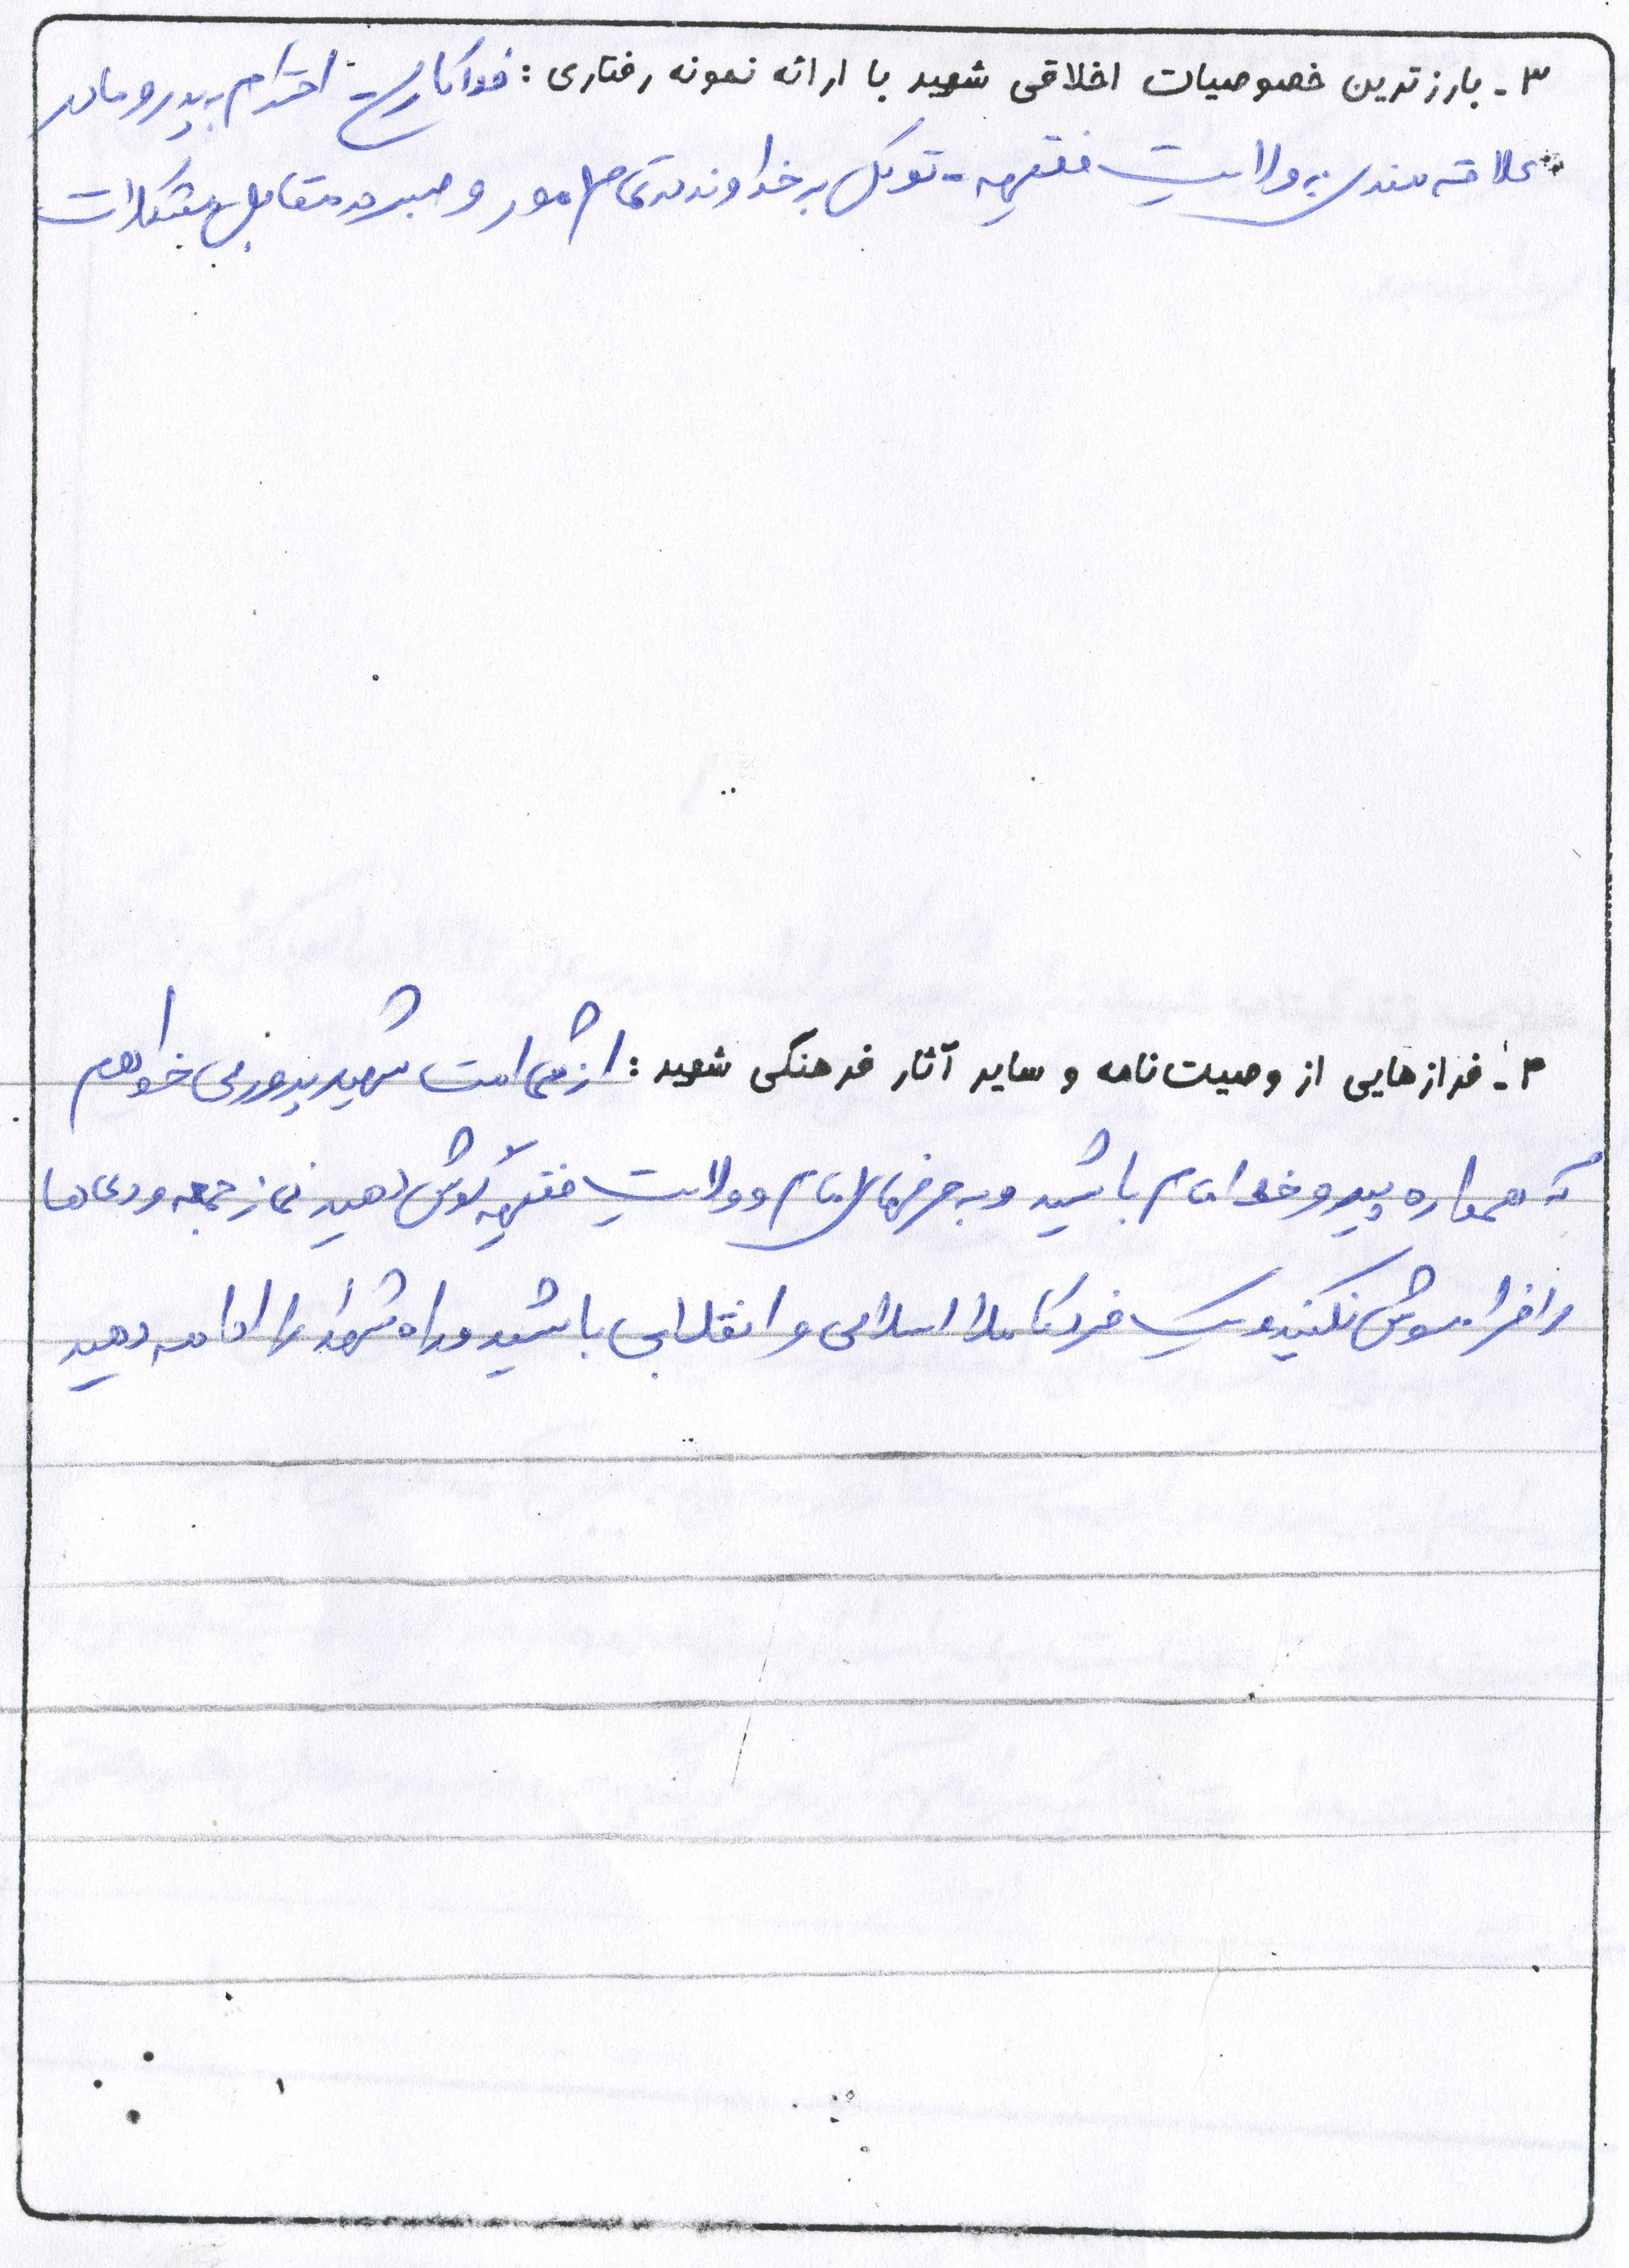 ۳- بارزترین خصوصیات اخلاقی شهید با ارائه نمونه رفتاری : فداکاری - احترام به پدر و مادر
علاقه مندی به ولایت فقیه - توکل بر خداوند در تمام امور و صبر در مقابل مشکلات
۴- فرازهایی از وصیت نامه و سایر آثار فرهنگی شهید : از شما امت شهید پرور می خواهم
که همواره پیرو خط امام باشید و به حرفهای امام و ولایت فقیه گوش دهید نماز جمعه و دعاها
را فراموش نکنید و یک فرد کاملا اسلامی و انقلابی باشید و راه شهدا را ادامه دهید